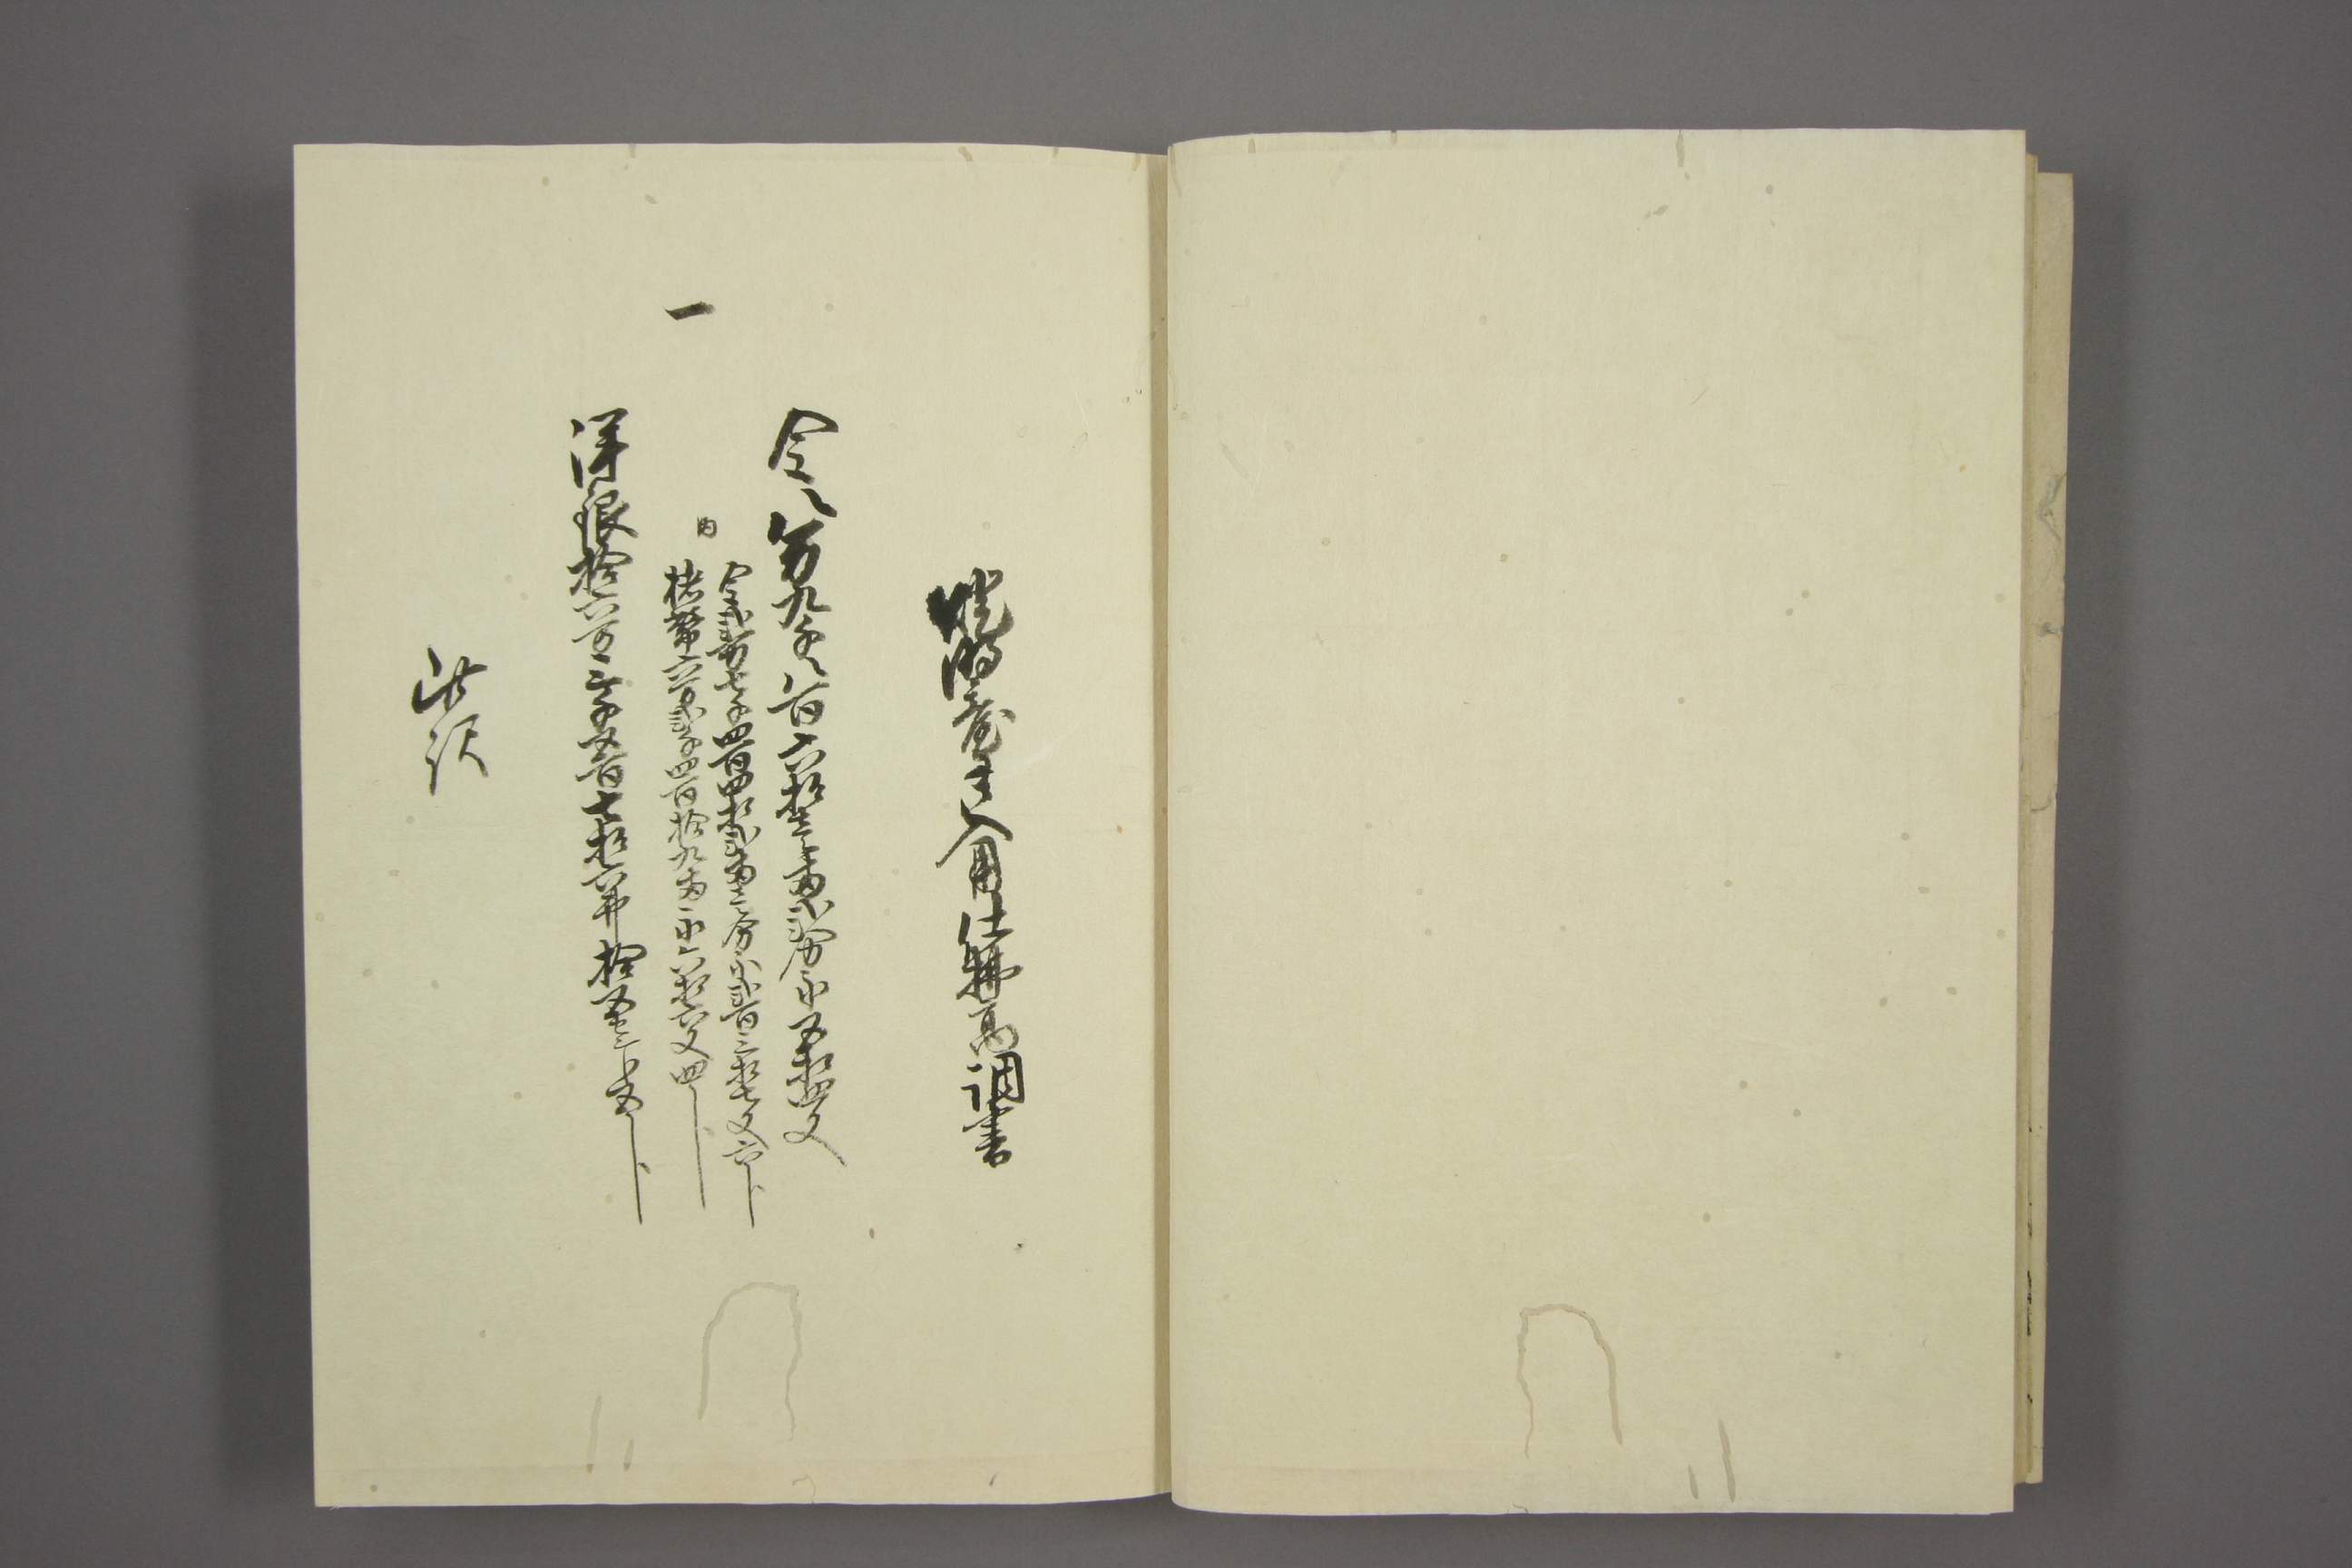 燈明臺御入用仕拂高調書
金八万九千八百六拾壱両弐分永五拾四文
金弐万七千四百四拾弐両壱分永弐百三拾七文六分
一
内
楮幣六万弐千四百拾九両永六拾六文四分
洋銀拾六万三千五百七拾六弗拾五セント五分
此訳